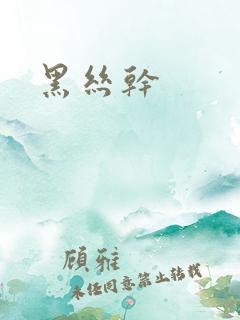 黑絲幹
顾雅
未经同意禁止转载